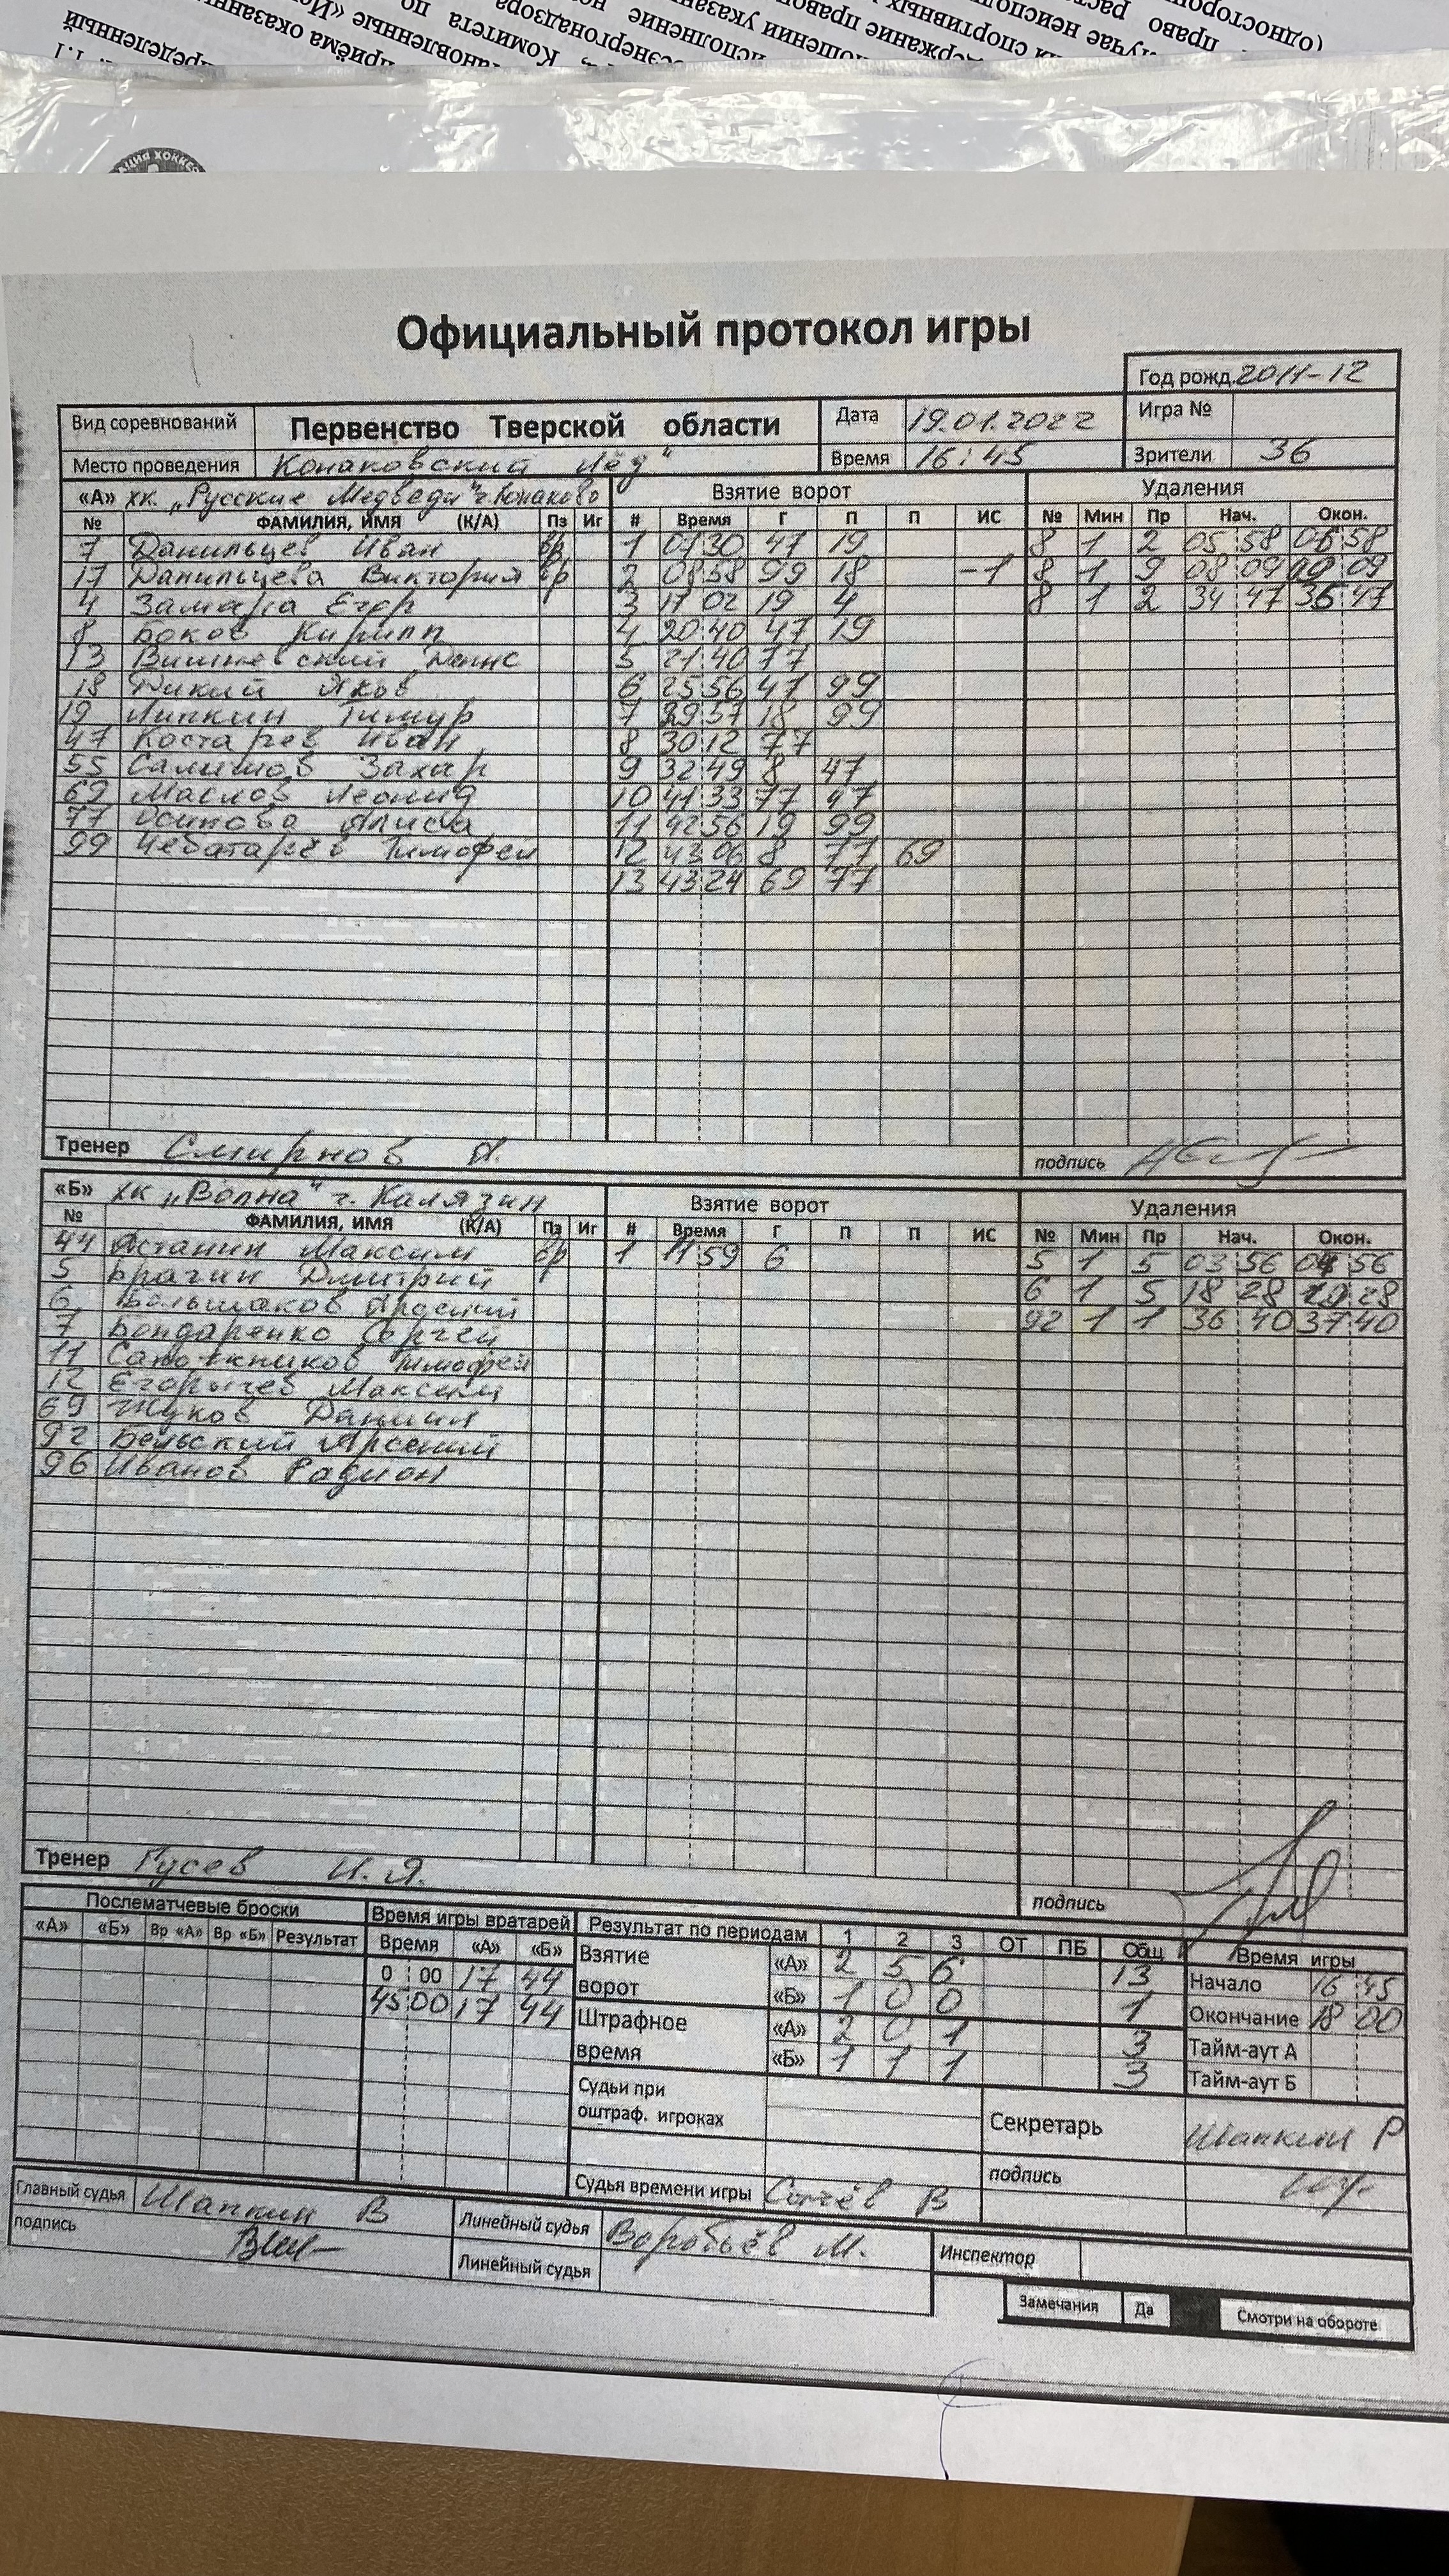 Официальный протокол игры
Год рожд. 2011-12
Вид соревнований Первенство Тверской области Дата 19.01.2022 Игра №
Место проведения "Конаковский лёд" Время 16:45 Зрители 36
«А» ХК „Русские Медведи" г. Конаково Взятие ворот Удаления
№ ФАМИЛИЯ, ИМЯ (К/А) Пз Иг # Время Г П П ИС № Мин Пр Нач. Окон.
7 Данильцев Иван вр 1 01 30 47 19 8 1 2 05 58 06 58
17 Данильцева Виктория вр 2 08 58 99 18 -1 8 1 9 08 09 09
4 Замара Егор 3 17 02 19 4 8 1 2 34 47 35 47
8 Боков Кирилл 4 20 40 47 19
13 Вишневский Денис 5 21 40 77
18 Дикий Яков 6 25 56 47 99
19 Липкин Тимур 7 29 57 18 99
47 Костарев Иван 8 30 12 77
55 Салимов Захар 9 32 49 8 47
69 Маслов Леонид 10 41 33 77 47
77 Осипова Алиса 11 42 56 19 99
99 Чеботарёв Тимофей 12 43 06 8 77 69
13 43 24 69 77
Тренер Смирнов А. подпись
«Б» ХК „Волна" г. Калязин Взятие ворот Удаления
№ ФАМИЛИЯ, ИМЯ (К/А) Пз Иг # Время Г П П ИС № Мин Пр Нач. Окон.
44 Астанин Максим вр 1 11 59 6 5 1 5 03 56 04 56
5 Брагин Дмитрий 6 1 5 18 28 19 28
6 Большаков Арсений 92 1 1 36 40 37 40
7 Бондаренко Сергей
11 Сапожников Тимофей
12 Егорычев Максим
69 Жуков Даниил
92 Бельский Арсений
96 Иванов Радион
Тренер Гусев И.Я. подпись
Послематчевые броски Время игры вратарей Результат по периодам 1 2 3 ОТ ПБ Общ Время игры
«А» «Б» Вр «А» Вр «Б» Результат Время «А» «Б» Взятие ворот «А» 2 5 6 13 Начало 16 45
0 00 17 44 «Б» 1 0 0 1 Окончание 18 00
45 00 17 44 Штрафное время «А» 2 0 1 3 Тайм-аут А
«Б» 1 1 1 3 Тайм-аут Б
Судьи при оштраф. игроках Секретарь Шапкин Р
Судья времени игры В подпись
Главный судья Шапкин В Линейный судья Воробьёв М.
подпись Линейный судья Инспектор
Замечания Да Смотри на обороте